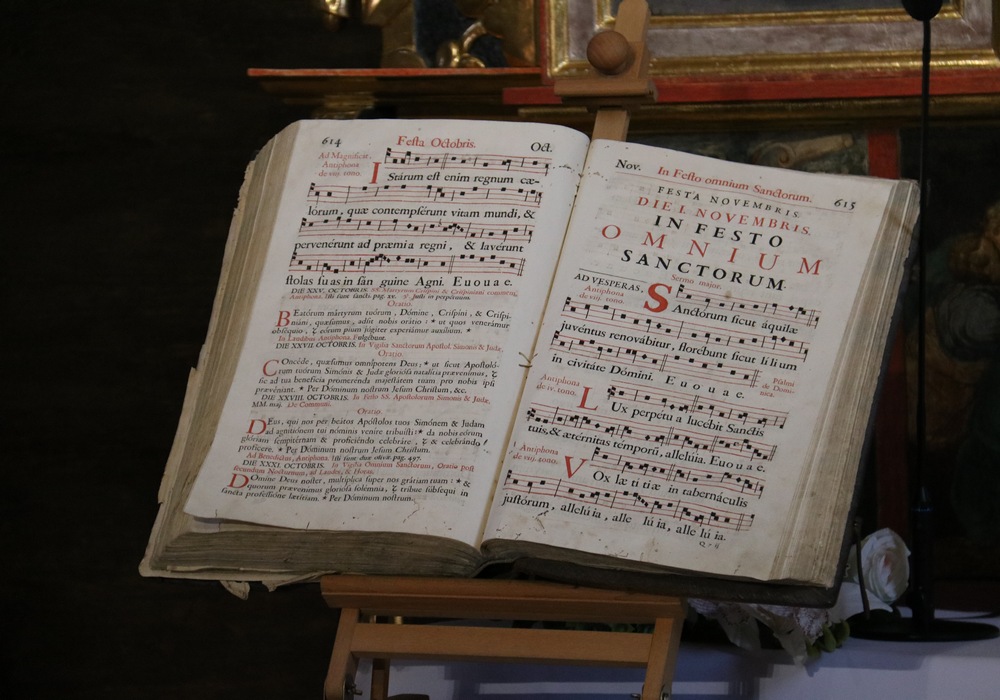 614 Festa Octobris. Oct.
Ad Magnificat,
Antiphona
de viij. tono.
IStárum est enim regnum cæ-
lorum, quæ contempsérunt vitam mundi, &
pervenérunt ad præmia regni, & lavérunt
stolas suas in sán guine Agni. E u o u a e.
DIE XXV. OCTOBRIS. SS. Martyrum Crispini & Crispiniani commem.
Antiphona. Isti sunt sancti. pag. xx. ℣. Justi in perpétuum.
Oratio.
BEatórum mártyrum tuórum, Dómine, Crispíni, & Crispi-
niáni, quæsumus, adsit nobis orátio: * ut quos venerámur
obséquio, & eórum pium júgiter experiámur auxílium. *
In Laudibus Antiphona. Fulgébunt.
DIE XXVII. OCTOBRIS. In Vigilia Sanctorum Apostol. Simonis & Judæ,
Oratio.
COncéde, quæsumus omnípotens Deus; * ut sicut Apostoló-
rum tuórum Simónis & Judæ gloriósa natalítia prævenímus, &
sic ad tua benefícia promerénda majestátem tuam pro nobis ipsi
prævéniant. * Per Dóminum nostrum Jesum Christum, &c.
DIE XXVIII. OCTOBRIS. In Festo SS. Apostolorum Simonis & Judæ,
MM. maj. De Communi.
Oratio.
DEus, qui nos per beátos Apóstolos tuos Simónem & Judam
ad agnitiónem tui nóminis veníre tribuísti: * da nobis eórum
glóriam sempitérnam & proficiéndo celebráre, & & celebrándo
profícere. * Per Dóminum nostrum Jesum Christum.
Ad Benedictus, Antiphona. Isti sunt duæ olívæ. pag. 497.
DIE XXXI. OCTOBRIS. In Vigilia Omnium Sanctorum, Oratio post
secundum Nocturnum, ad Laudes, & Horas.
DOmine Deus noster, multíplica super nos grátiam tuam: * &
quorum prævenímus gloriósa solémnia, & tríbue súbsequi in
sancta professióne lætítiam. * Per Dóminum nostrum.
Nov. In Festo omnium Sanctorum. 615
FESTA NOVEMBRIS.
DIE I. NOVEMBRIS.
IN FESTO
OMNIUM
SANCTORUM.
Sermo major.
AD VESPERAS,
Antiphona
de viij. tono.
SAnctórum sicut áquilæ
juvéntus renovábitur, florébunt sicut lí lium
in civitáte Dómini. E u o u a e.
Psalmi
de Domi-
nica.
Antiphona
de iv. tono.
LUx perpétua lucébit Sanctis
tuis, & ætérnitas témporū, allelúia. E u o u a e.
Antiphona
de viij. tono.
VOx læ tí tiæ in tabernáculis
justórum, allelú ia, alle lú ia, alle lú ia.